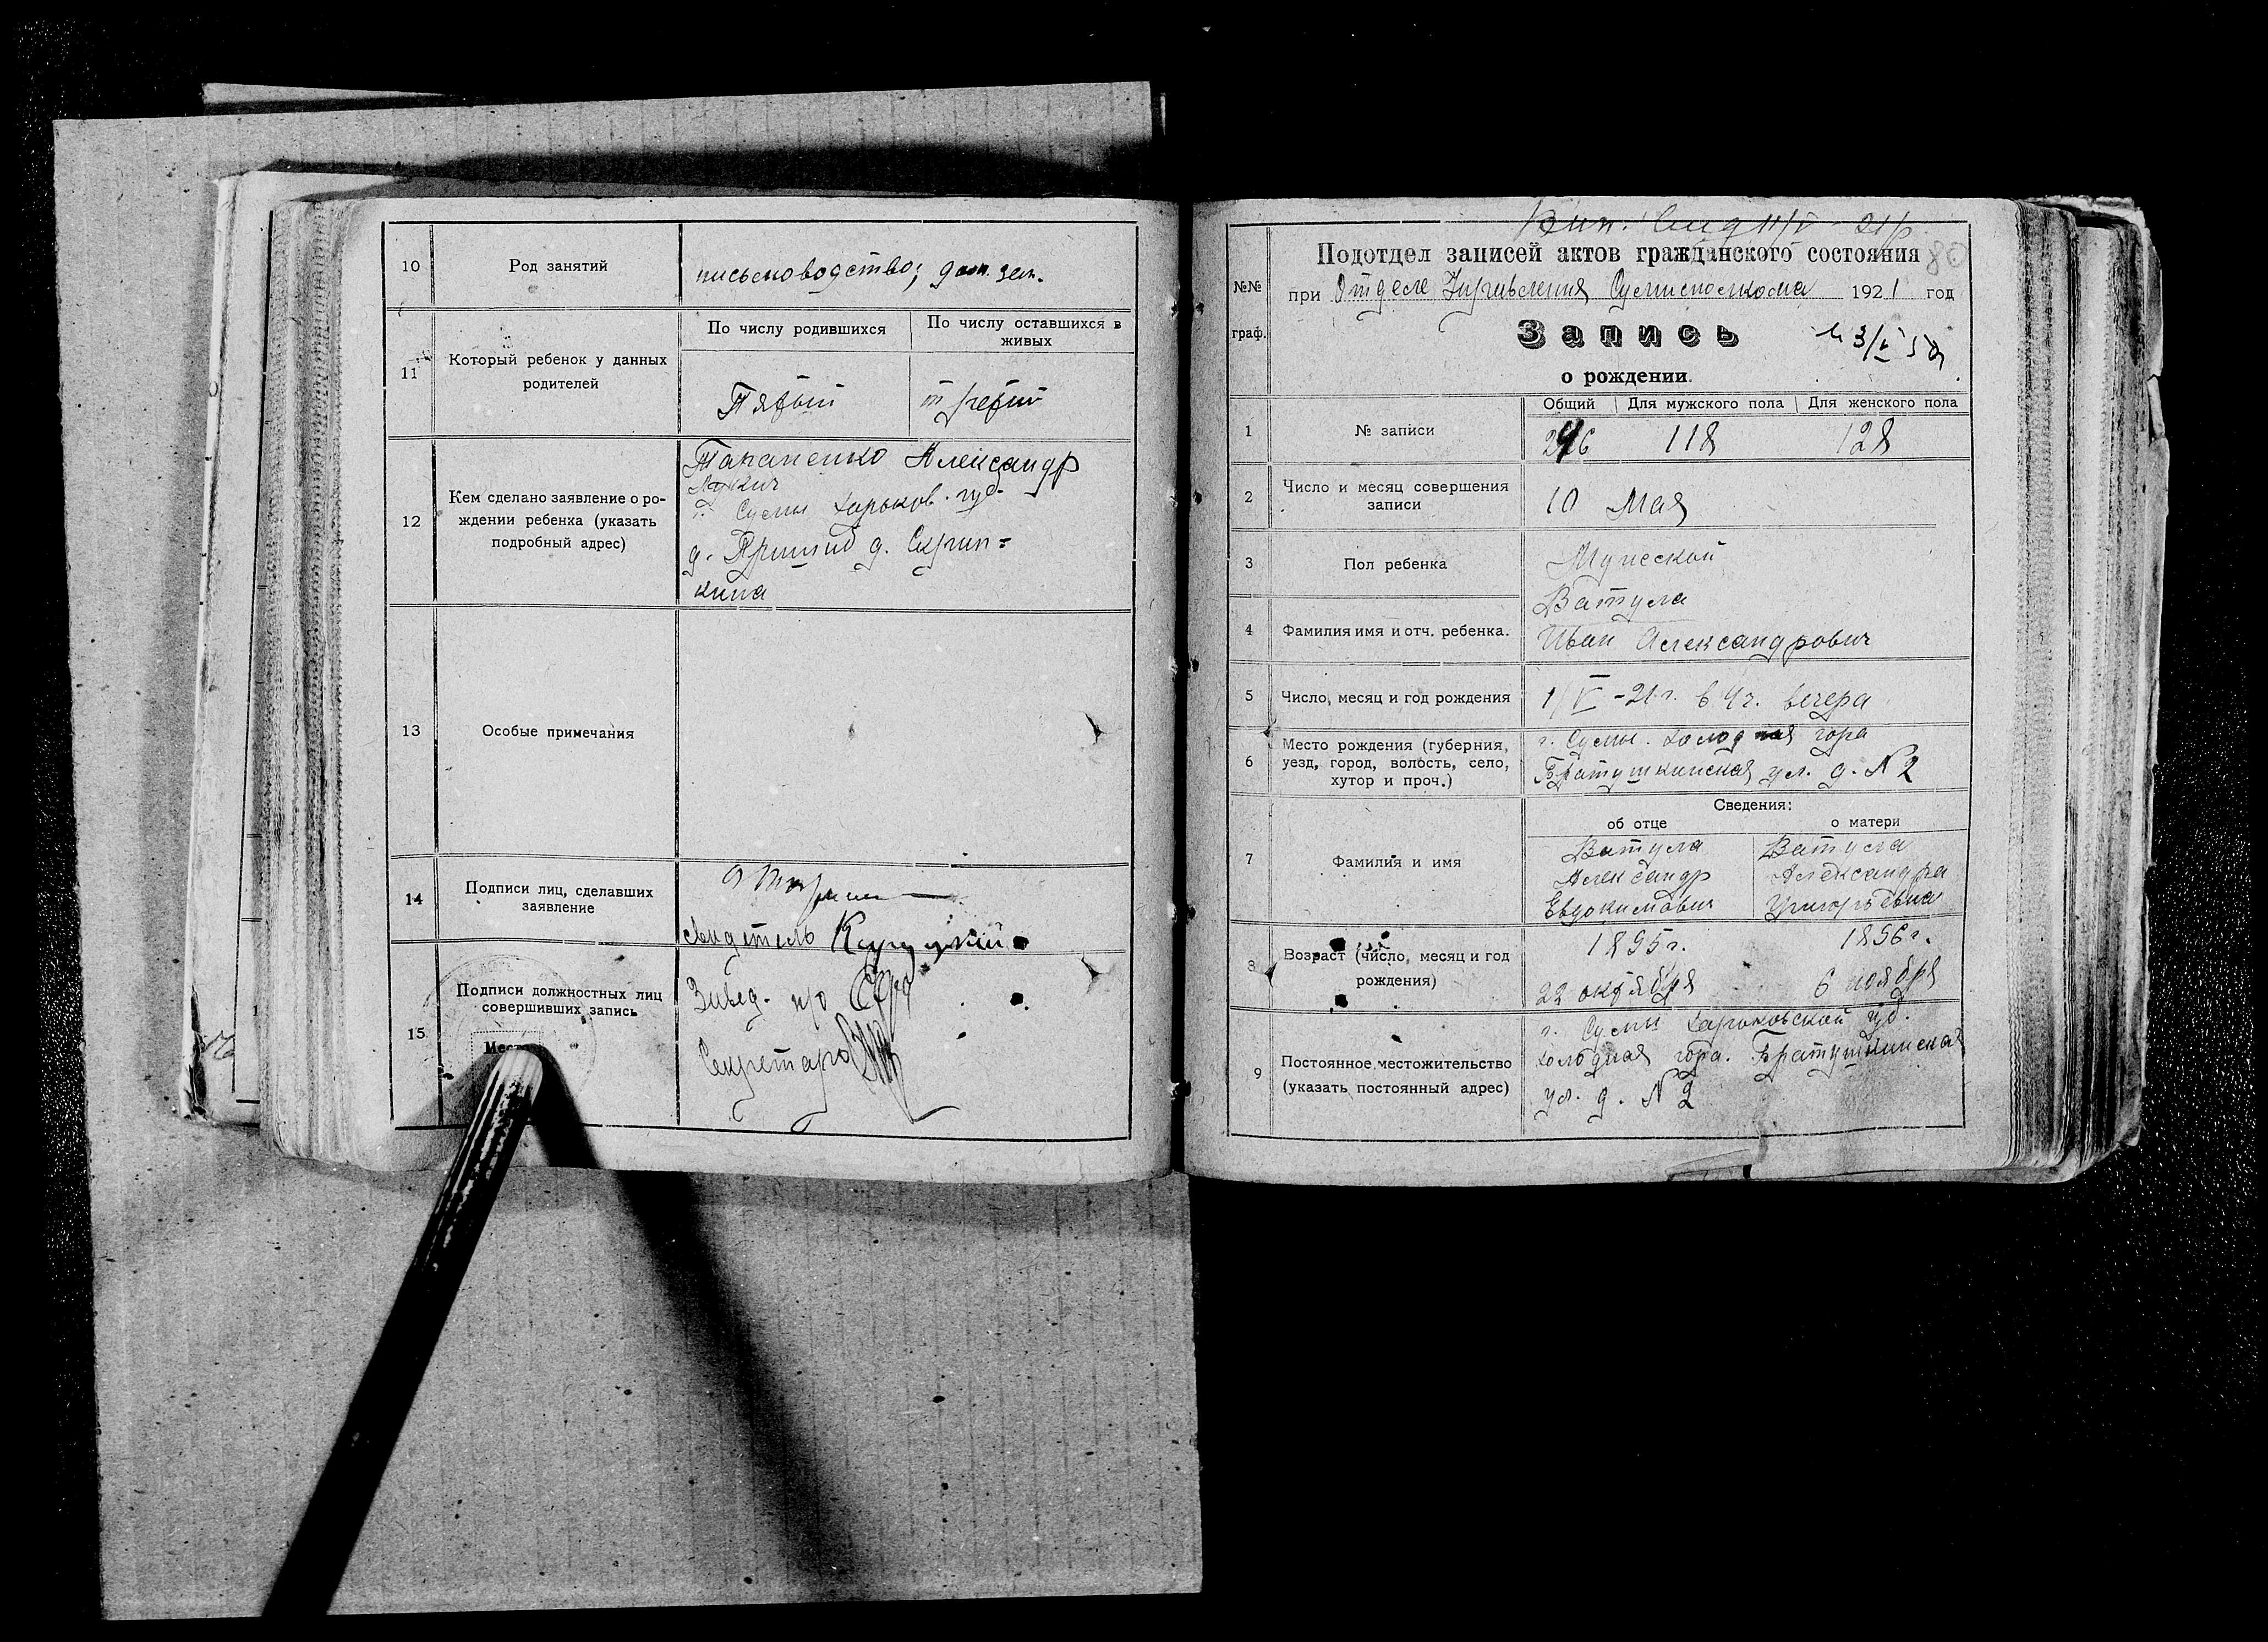 10
Род занятий
письмоводство; дом. зем.
11
Который ребенок у данных
родителей
По числу родившихся
По числу оставшихся в
живых
Пятый
третий
12
Кем сделано заявление о ро-
ждении ребенка (указать
подробный адрес)
Александр
Лукич
г. Сумы Харьков. губ.
кина
13
Особые примечания
14
Подписи лиц, сделавших
заявление
свидетель
15
Подписи должностных лиц
совершивших запись
Завед. п/о
Секретарь
80
№№
граф.
Подотдел записей актов гражданского состояния
при Отделе Управления 1921 год
Запись
о рождении.
Общий
Для мужского пола
Для женского пола
1
№ записи
246
118
128
2
Число и месяц совершения
записи
10 Мая
3
Пол ребенка
Мужеской
4
Фамилия имя и отч. ребенка.
Ватула
Иван Александрович
5
Число, месяц и год рождения
1/V - 21 г. в 4 ч. вечера
6
Место рождения (губерния,
уезд, город, волость, село,
хутор и проч.)
г. Сумы. Холодная гора
Братушкинская ул. д. № 2
7
Фамилия и имя
Сведения:
об отце
о матери
Ватула
Александр
Евдокимович
Ватула
Александра
Григорьевна
8
Возраст (число, месяц и год
рождения)
1895 г.
22 октября
1896 г.
6 ноября
9
Постоянное местожительство
(указать постоянный адрес)
г. Сумы Харьковской губ.
Холодная гора. Братушкинская
ул. д. № 2